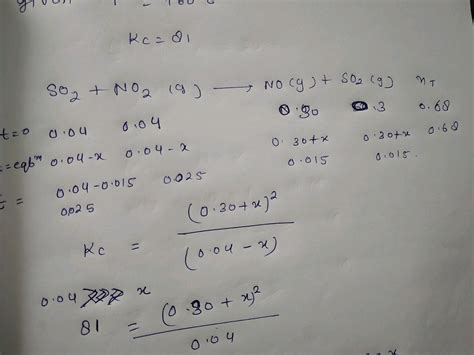 given T = 100°C
Kc = 81
SO2 + NO2 (g) ⟶ NO(g) + SO2 (g) nT
t=0 0.04 0.04 0.30 0.3 0.68
eqbm 0.04-x 0.04-x 0.30+x 0.30+x 0.68
= 0.04-0.015 0.025 0.015 0.015.
0.025
Kc = (0.30+x)²
(0.04-x)
0.04 x
81 = (0.30+x)²
0.04